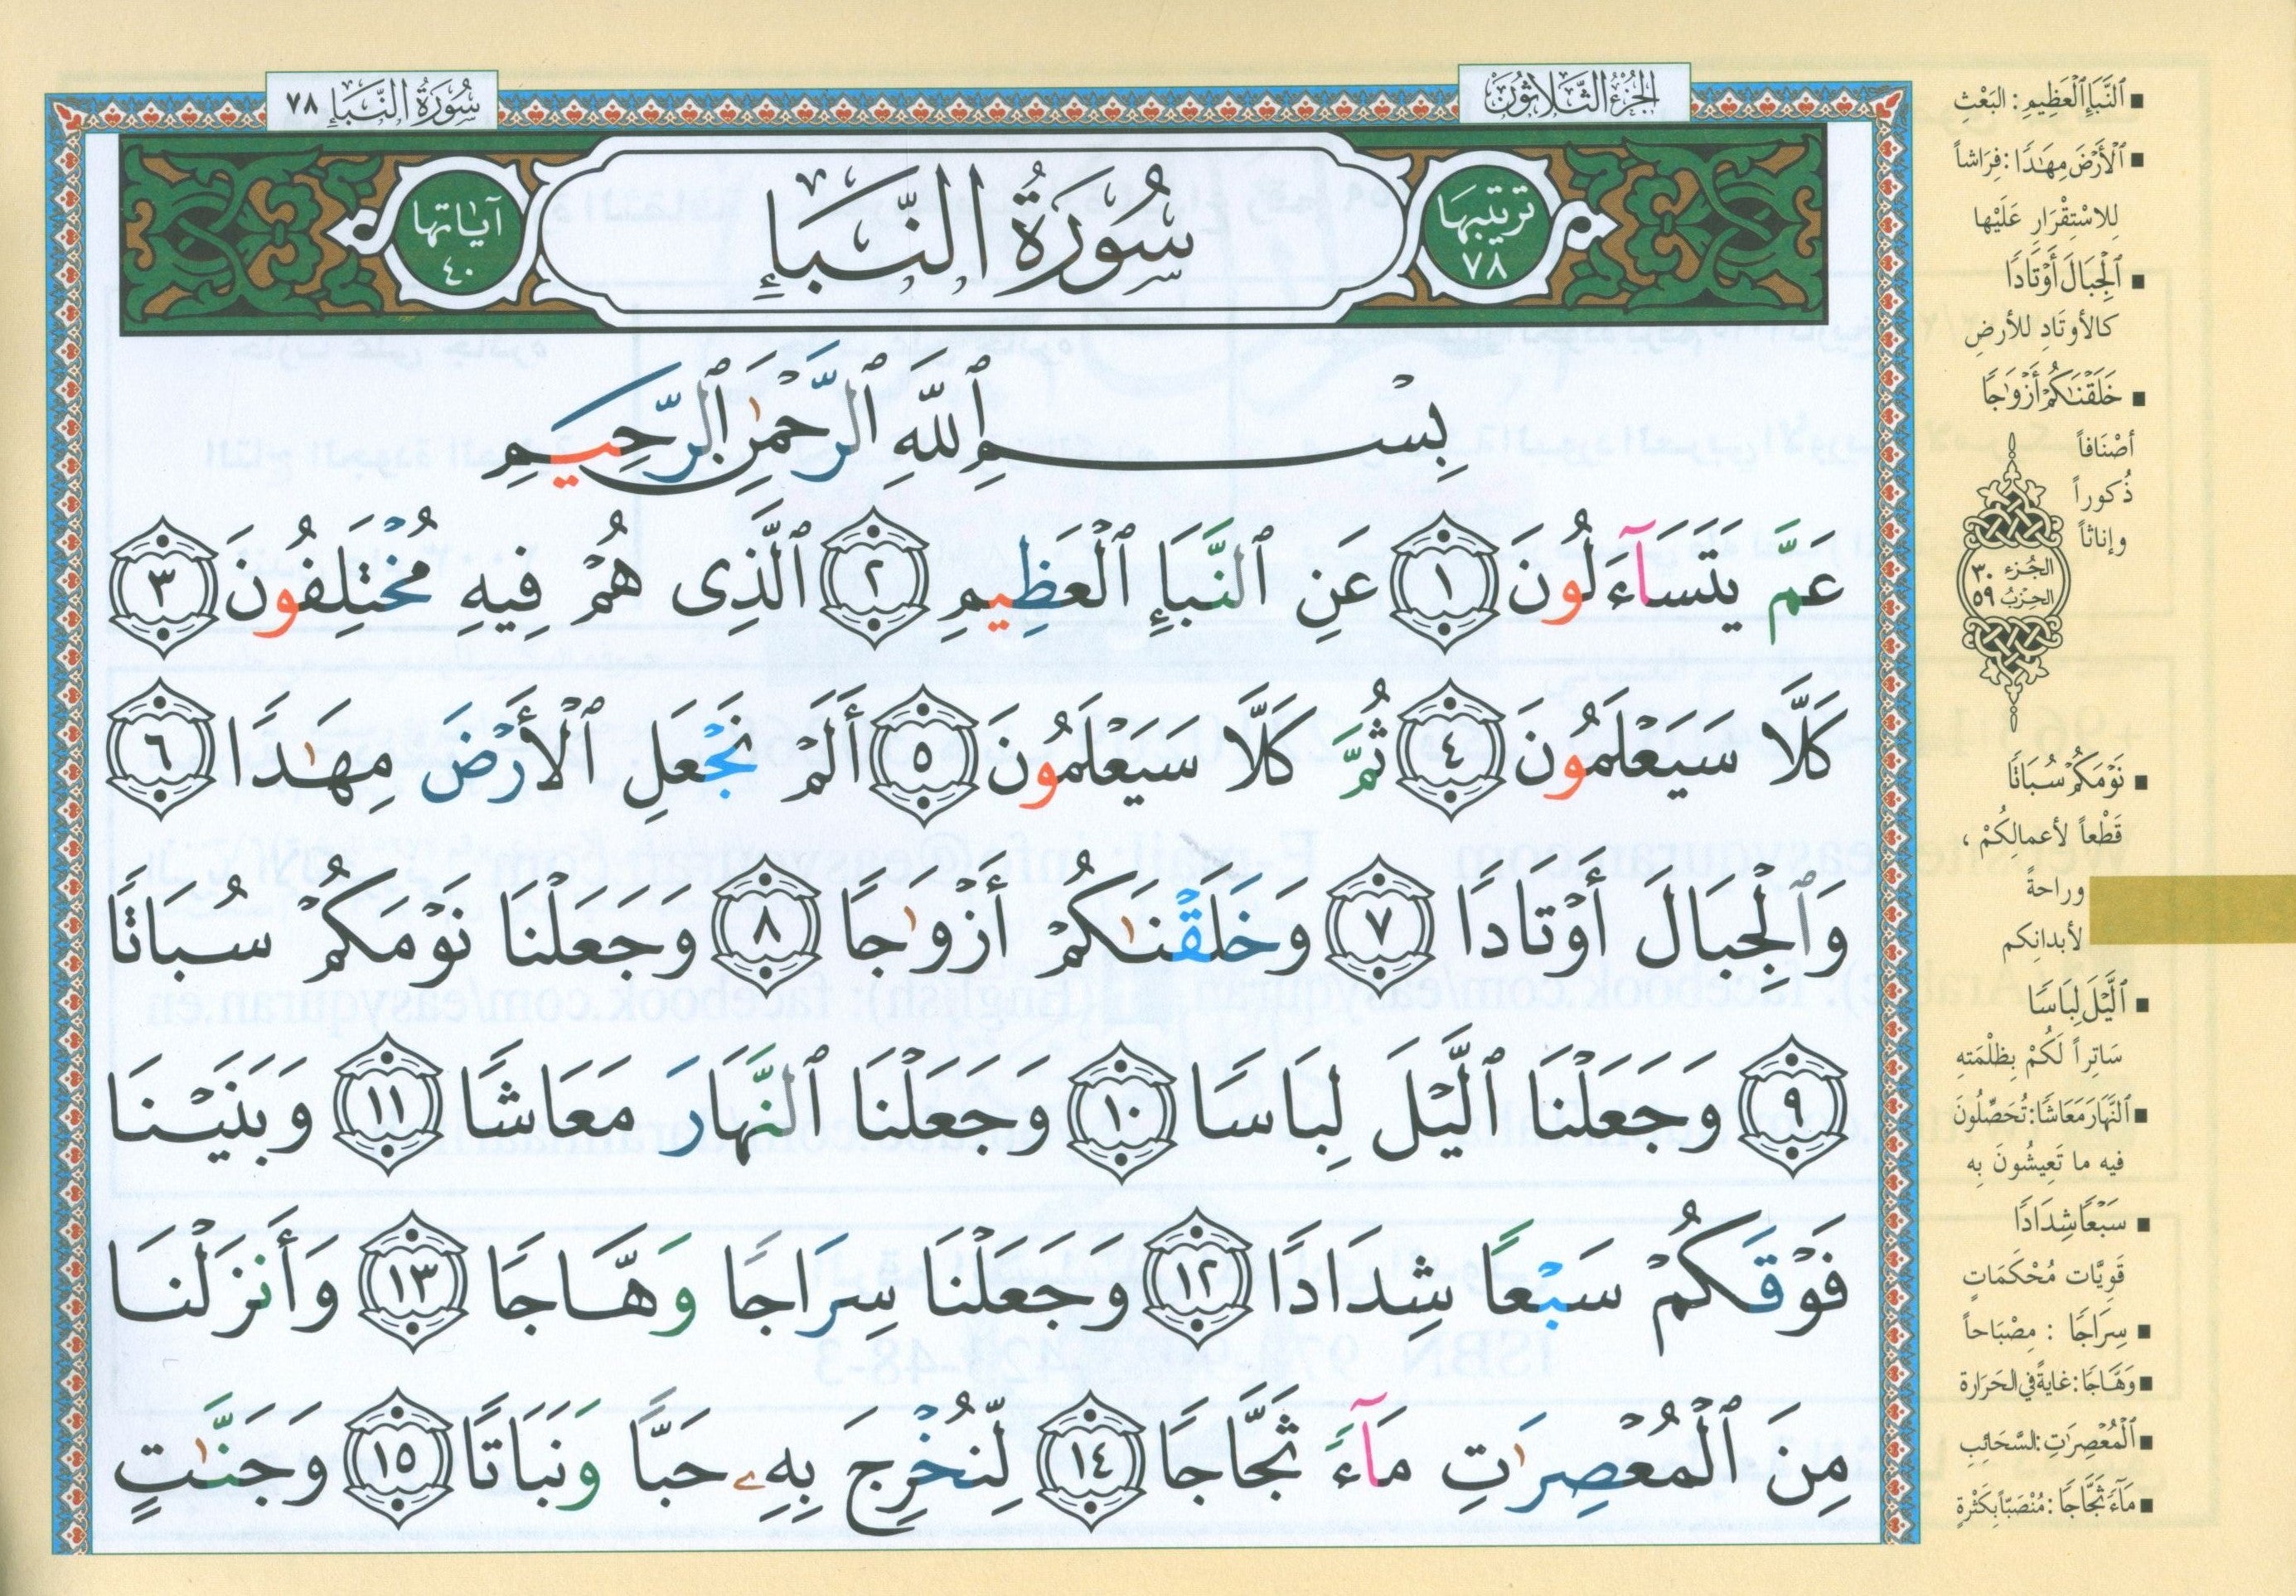 الجزء الثلاثون
سورة النبإ ٧٨
ترتيبها ٧٨
سُورَةُ النَّبَإِ
آياتها ٤٠
بِسْمِ ٱللَّهِ ٱلرَّحْمَٰنِ ٱلرَّحِيمِ
عَمَّ يَتَسَآءَلُونَ ١ عَنِ ٱلنَّبَإِ ٱلْعَظِيمِ ٢ ٱلَّذِى هُمْ فِيهِ مُخْتَلِفُونَ ٣
كَلَّا سَيَعْلَمُونَ ٤ ثُمَّ كَلَّا سَيَعْلَمُونَ ٥ أَلَمْ نَجْعَلِ ٱلْأَرْضَ مِهَٰدًا ٦
وَٱلْجِبَالَ أَوْتَادًا ٧ وَخَلَقْنَٰكُمْ أَزْوَٰجًا ٨ وَجَعَلْنَا نَوْمَكُمْ سُبَاتًا
٩ وَجَعَلْنَا ٱلَّيْلَ لِبَاسًا ١٠ وَجَعَلْنَا ٱلنَّهَارَ مَعَاشًا ١١ وَبَنَيْنَا
فَوْقَكُمْ سَبْعًا شِدَادًا ١٢ وَجَعَلْنَا سِرَاجًا وَهَّاجًا ١٣ وَأَنزَلْنَا
مِنَ ٱلْمُعْصِرَٰتِ مَآءً ثَجَّاجًا ١٤ لِّنُخْرِجَ بِهِۦ حَبًّا وَنَبَاتًا ١٥ وَجَنَّٰتٍ
■ ٱلنَّبَإِ ٱلْعَظِيمِ : البَعْثِ
■ ٱلْأَرْضَ مِهَٰدًا : فِرَاشاً
لِلاسْتِقْرَارِ عَلَيْها
■ ٱلْجِبَالَ أَوْتَادًا
كالأوتَادِ للأرضِ
■ خَلَقْنَٰكُمْ أَزْوَٰجًا
أصْنَافاً
ذُكوراً
وإناثاً
الجُزء ٣٠
الحِزبُ ٥٩
■ نَوْمَكُمْ سُبَاتًا
قَطْعاً لأعمالِكُمْ ،
وراحةً
لأبدانِكم
■ ٱلَّيْلَ لِبَاسًا
سَاتِراً لَكُمْ بِظلْمَتهِ
■ ٱلنَّهَارَ مَعَاشًا : تُحَصِّلُونَ
فيه ما تَعِيشُونَ بِه
■ سَبْعًا شِدَادًا
قَوِيَّات مُحْكَمَاتٍ
■ سِرَاجًا : مِصْبَاحاً
■ وَهَّاجًا : غايةً في الحَرَارة
■ ٱلْمُعْصِرَٰتِ : السَّحَائِبِ
■ مَآءً ثَجَّاجًا : مُنْصَبّاً بِكَثْرةٍ